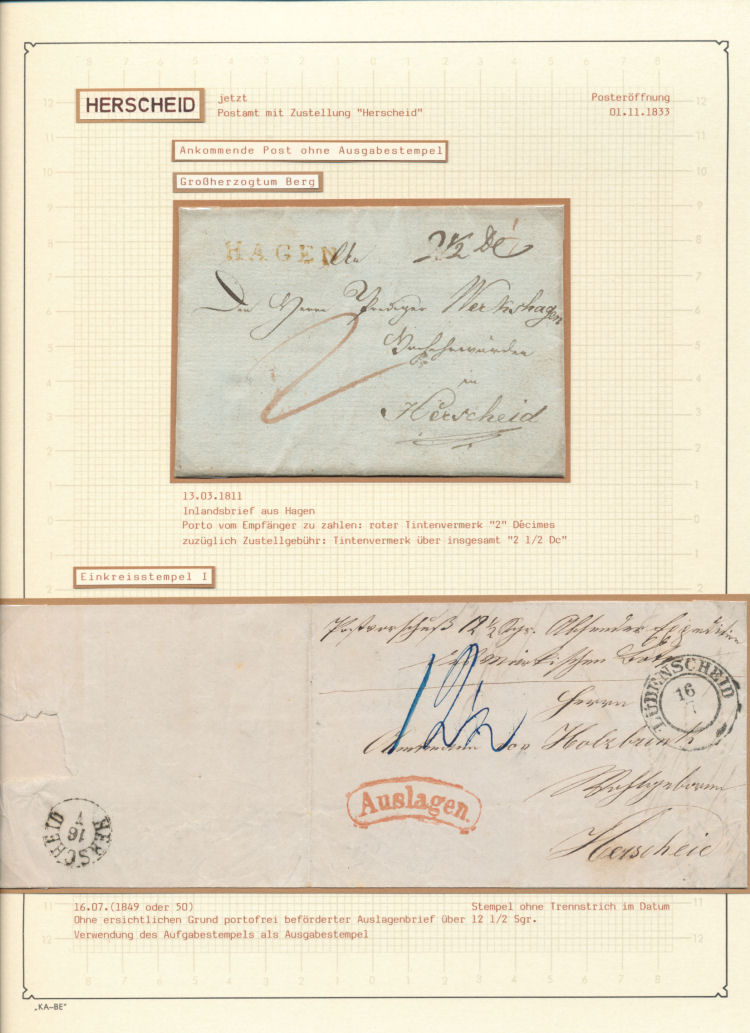 HERSCHEID
jetzt
Postamt mit Zustellung "Herscheid"
Posteröffnung
01.11.1833
Ankommende Post ohne Ausgabestempel
Großherzogtum Berg
HAGEN
2 1/2 Dc
2
Den Herrn Prediger Werkshagen
Hochehrwürden
in
Herscheid
13.03.1811
Inlandsbrief aus Hagen
Porto vom Empfänger zu zahlen: roter Tintenvermerk "2" Décimes
zuzüglich Zustellgebühr: Tintenvermerk über insgesamt "2 1/2 Dc"
Einkreisstempel I
Postvorschuß 12 1/2 Sgr. Absender Expedition
des Märkischen Boten
LÜDENSCHEID
16
7
12 1/2
Herrn
Amtmann von Holzbrink
Wohlgeboren
Auslagen.
Herscheid
HERSCHEID
16
7
16.07.(1849 oder 50)
Stempel ohne Trennstrich im Datum
Ohne ersichtlichen Grund portofrei beförderter Auslagenbrief über 12 1/2 Sgr.
Verwendung des Aufgabestempels als Ausgabestempel
„KA-BE"